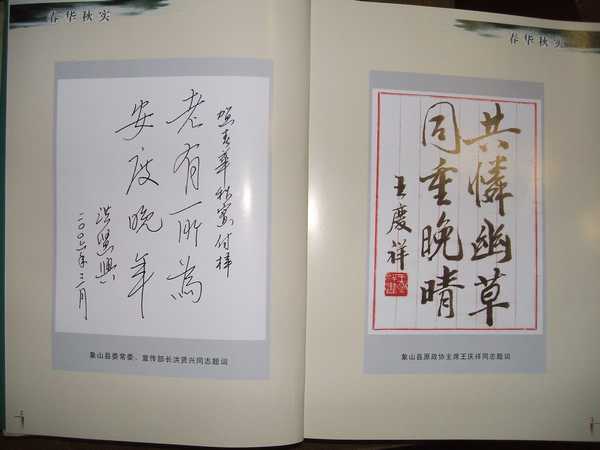 春华秋实
贺春華秋實付梓
老有所為
安度晚年
洪賢興
二〇〇六年三月
象山县委常委、宣传部长洪贤兴同志题词
春华秋实
共憐幽草
同重晚晴
王慶祥
象山县原政协主席王庆祥同志题词